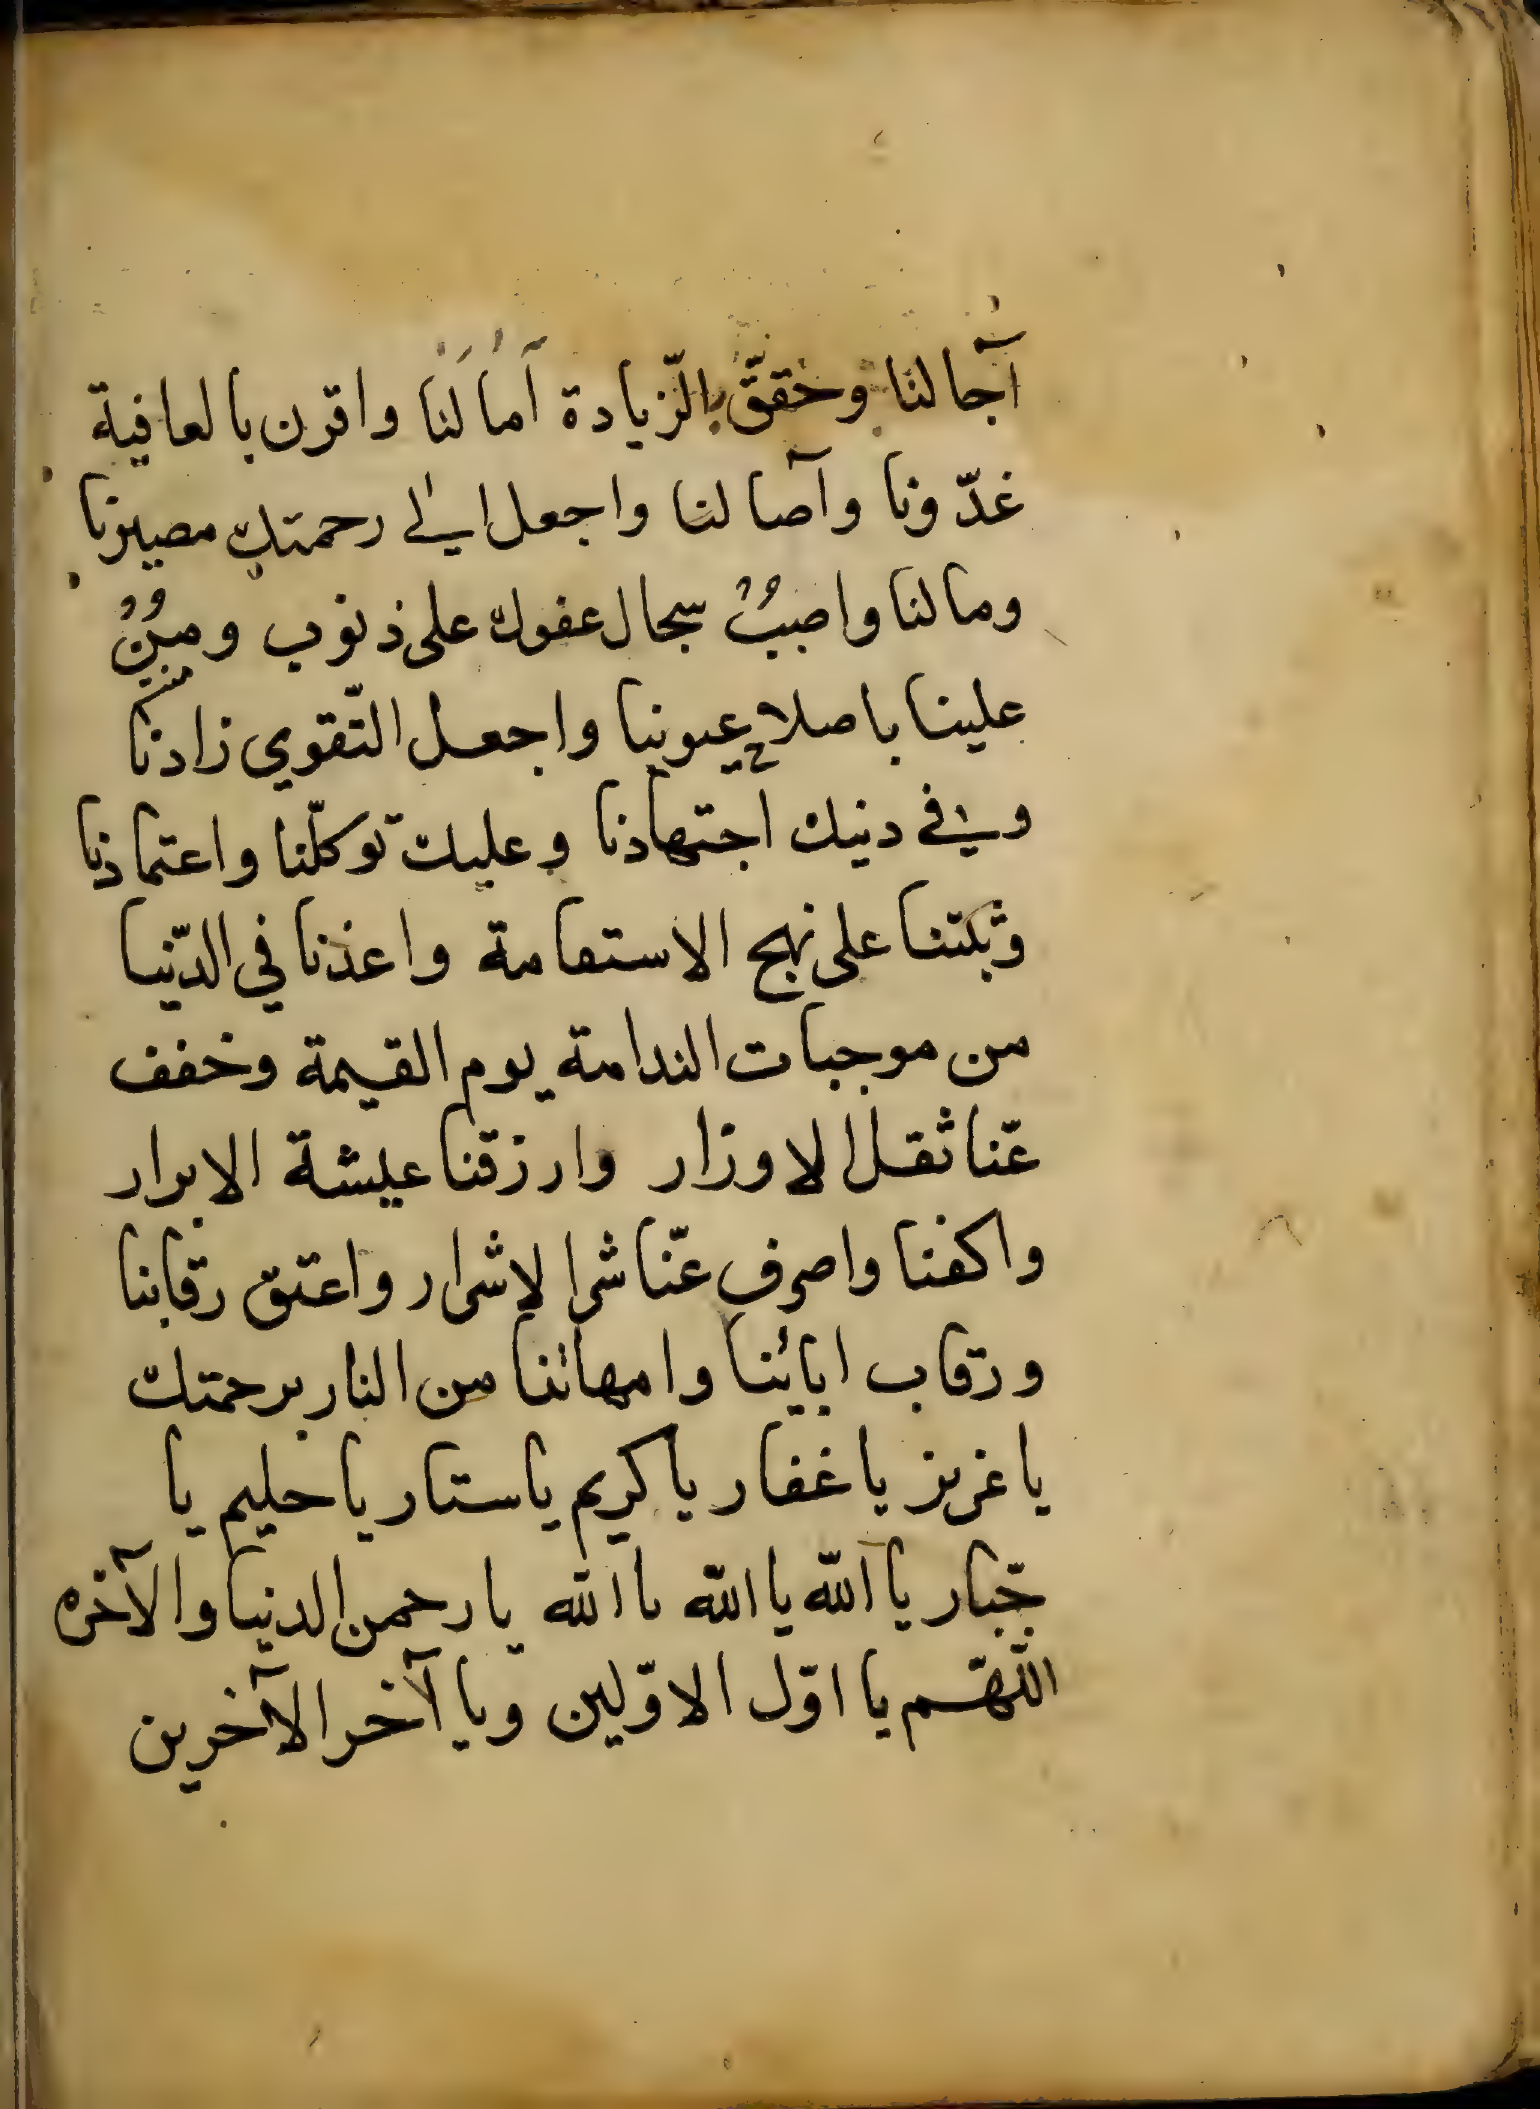 آجالنا وحقّق بالّزيادة آمالنا واقرن بالعافية
غدّونا وآصالنا واجعل الى رحمتك مصيرنا
ومالنا واصبب سجال عفوك على ذنوب ومن
علينا باصلاح عيوبنا واجعل التّقوي زادنا
وفي دنيك اجتهادنا وعليك توكلّنا واعتمادنا
وثبتنا على نهج الاستقامة واعذنا في الدّنيا
من موجبات الندامة يوم القيمة وخفف
عنّا ثقل الاوزار وارزقنا عيشة الابرار
واكفنا واصرف عنّا شرالاشرار واعتق رقابنا
ورقاب ابائنا وامهاتنا من النار برحمتك
يا عزيز يا غفار يا كريم يا ستار يا حليم يا
جبّار يا اللّه يا اللّه يا اللّه يا رحمن الدنيا والآخره
اللّهّم يا اوّل الاوّلين ويا آخر الآخرين